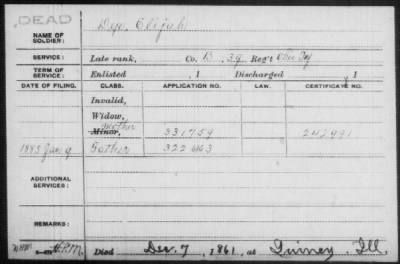 DEAD
NAME OF SOLDIER: Dye, Elijah
SERVICE: Late rank, Co. B, 39 Reg't Ohio Inf
TERM OF SERVICE: Enlisted , 1 Discharged , 1
DATE OF FILING. CLASS. APPLICATION NO. LAW. CERTIFICATE NO.
Invalid,
Widow,
Mother
Minor, 331759 242991
1883 Jan 9 Father 322663
ADDITIONAL SERVICES:
REMARKS:
Died Dec. 7, 1861, at Quincy, Ill.